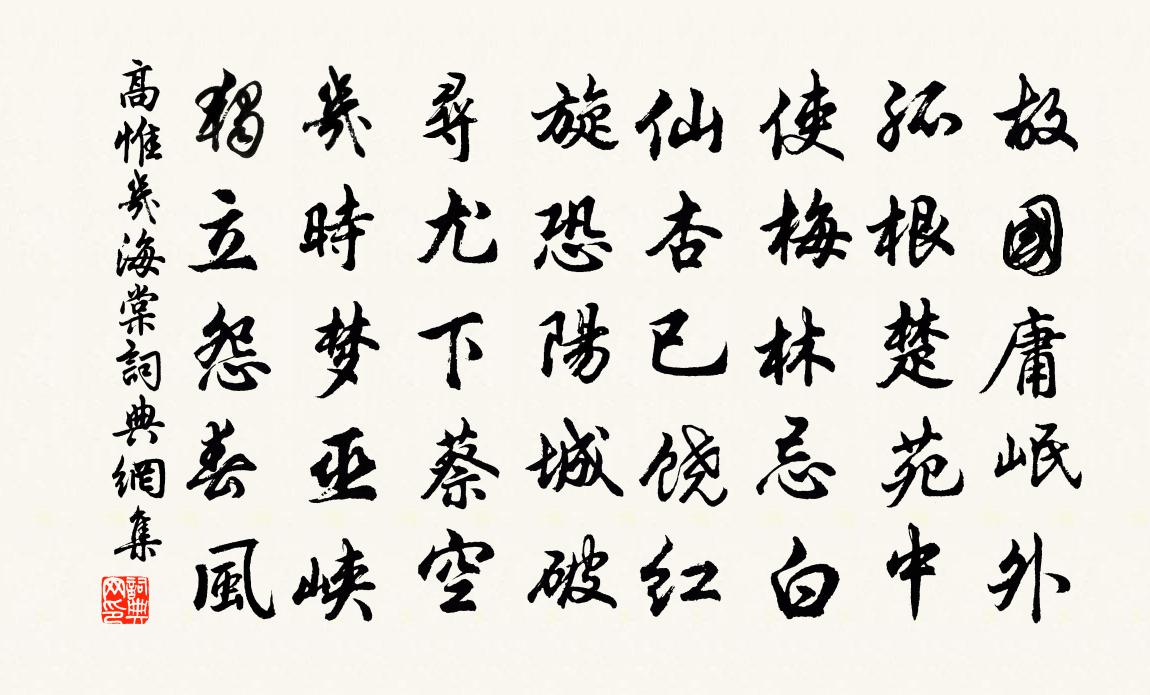 故國庸岷外
孤根楚苑中
使梅林忌白
仙杏已饶红
旋恐陽城破
尋尤下蔡空
幾時梦巫峽
獨立怨春風
高惟幾海棠詞典網集
詞典網印